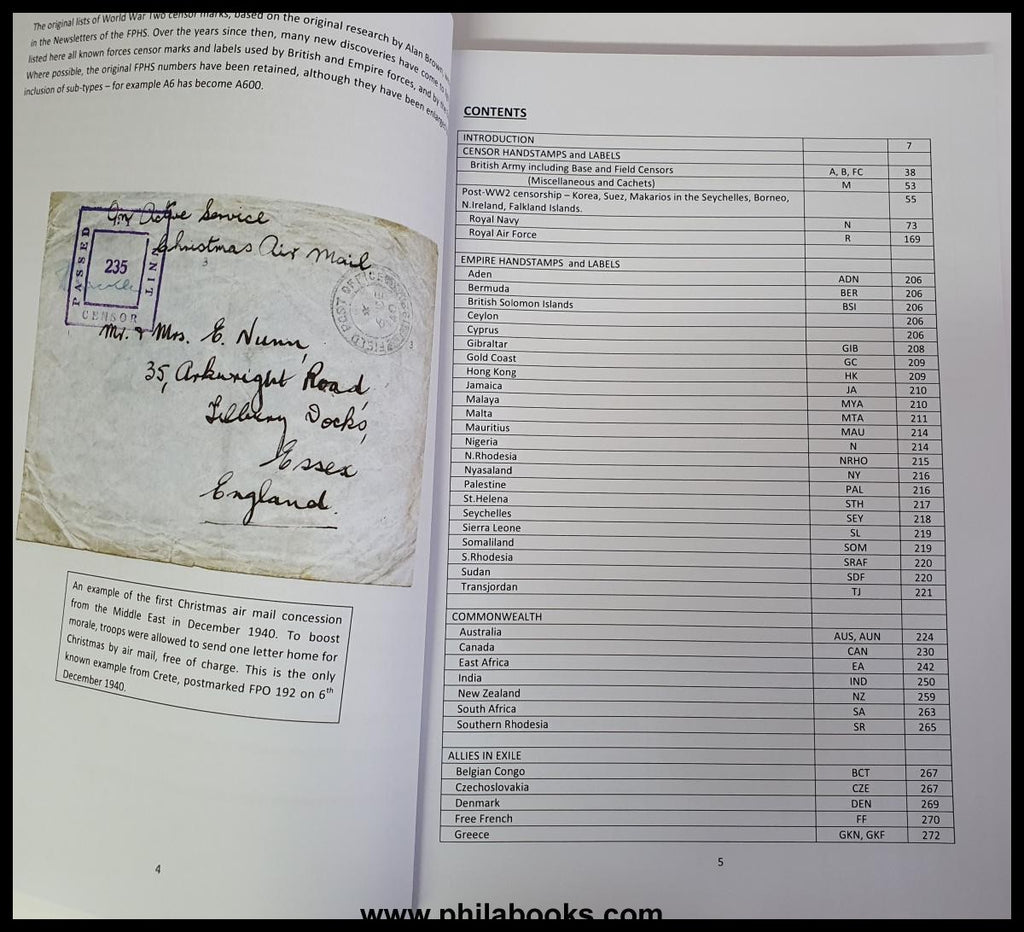 The original lists of World War Two censor marks, based on the original research by Alan Brown,
in the Newsletters of the FPHS. Over the years since then, many new discoveries have come to
listed here all known forces censor marks and labels used by British and Empire forces, and by the
Where possible, the original FPHS numbers have been retained, although they have been enlarged
inclusion of sub-types – for example A6 has become A600.
On Active Service
Christmas Air Mail
PASSED
235
UNIT
CENSOR
FIELD POST OFFICE
Mr. & Mrs. E. Nunn,
35, Arkwright Road,
Tilbury Docks,
Essex
England.
An example of the first Christmas air mail concession
from the Middle East in December 1940. To boost
morale, troops were allowed to send one letter home for
Christmas by air mail, free of charge. This is the only
known example from Crete, postmarked FPO 192 on 6th
December 1940.
4
CONTENTS
INTRODUCTION 7
CENSOR HANDSTAMPS and LABELS
British Army including Base and Field Censors A, B, FC 38
(Miscellaneous and Cachets) M 53
Post-WW2 censorship – Korea, Suez, Makarios in the Seychelles, Borneo, 55
N.Ireland, Falkland Islands.
Royal Navy N 73
Royal Air Force R 169
EMPIRE HANDSTAMPS and LABELS
Aden ADN 206
Bermuda BER 206
British Solomon Islands BSI 206
Ceylon 206
Cyprus 206
Gibraltar GIB 208
Gold Coast GC 209
Hong Kong HK 209
Jamaica JA 210
Malaya MYA 210
Malta MTA 211
Mauritius MAU 214
Nigeria N 214
N.Rhodesia NRHO 215
Nyasaland NY 216
Palestine PAL 216
St.Helena STH 217
Seychelles SEY 218
Sierra Leone SL 219
Somaliland SOM 219
S.Rhodesia SRAF 220
Sudan SDF 220
Transjordan TJ 221
COMMONWEALTH
Australia AUS, AUN 224
Canada CAN 230
East Africa EA 242
India IND 250
New Zealand NZ 259
South Africa SA 263
Southern Rhodesia SR 265
ALLIES IN EXILE
Belgian Congo BCT 267
Czechoslovakia CZE 267
Denmark DEN 269
Free French FF 270
Greece GKN, GKF 272
5
www.philabooks.com